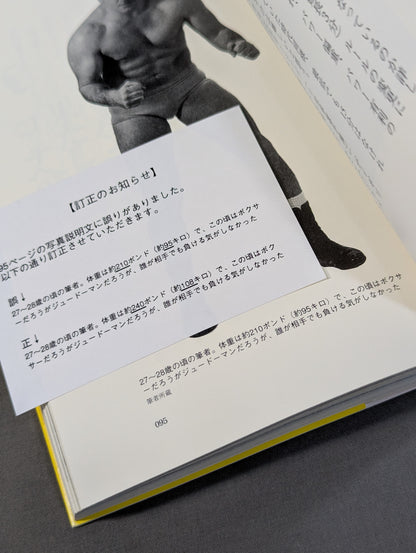 【訂正のお知らせ】
95ページの写真説明文に誤りがありました。
以下の通り訂正させていただきます。
誤↓
27〜28歳の頃の筆者。体重は約210ポンド（約95キロ）で、この頃はボクサ
ーだろうがジュードーマンだろうが、誰が相手でも負ける気がしなかった
正↓
27〜28歳の頃の筆者。体重は約240ポンド（約108キロ）で、この頃はボク
サーだろうがジュードーマンだろうが、誰が相手でも負ける気がしなかった
27〜28歳の頃の筆者。体重は約210ポンド（約95キロ）で、この頃はボクサ
ーだろうがジュードーマンだろうが、誰が相手でも負ける気がしなかった
筆者所蔵
095